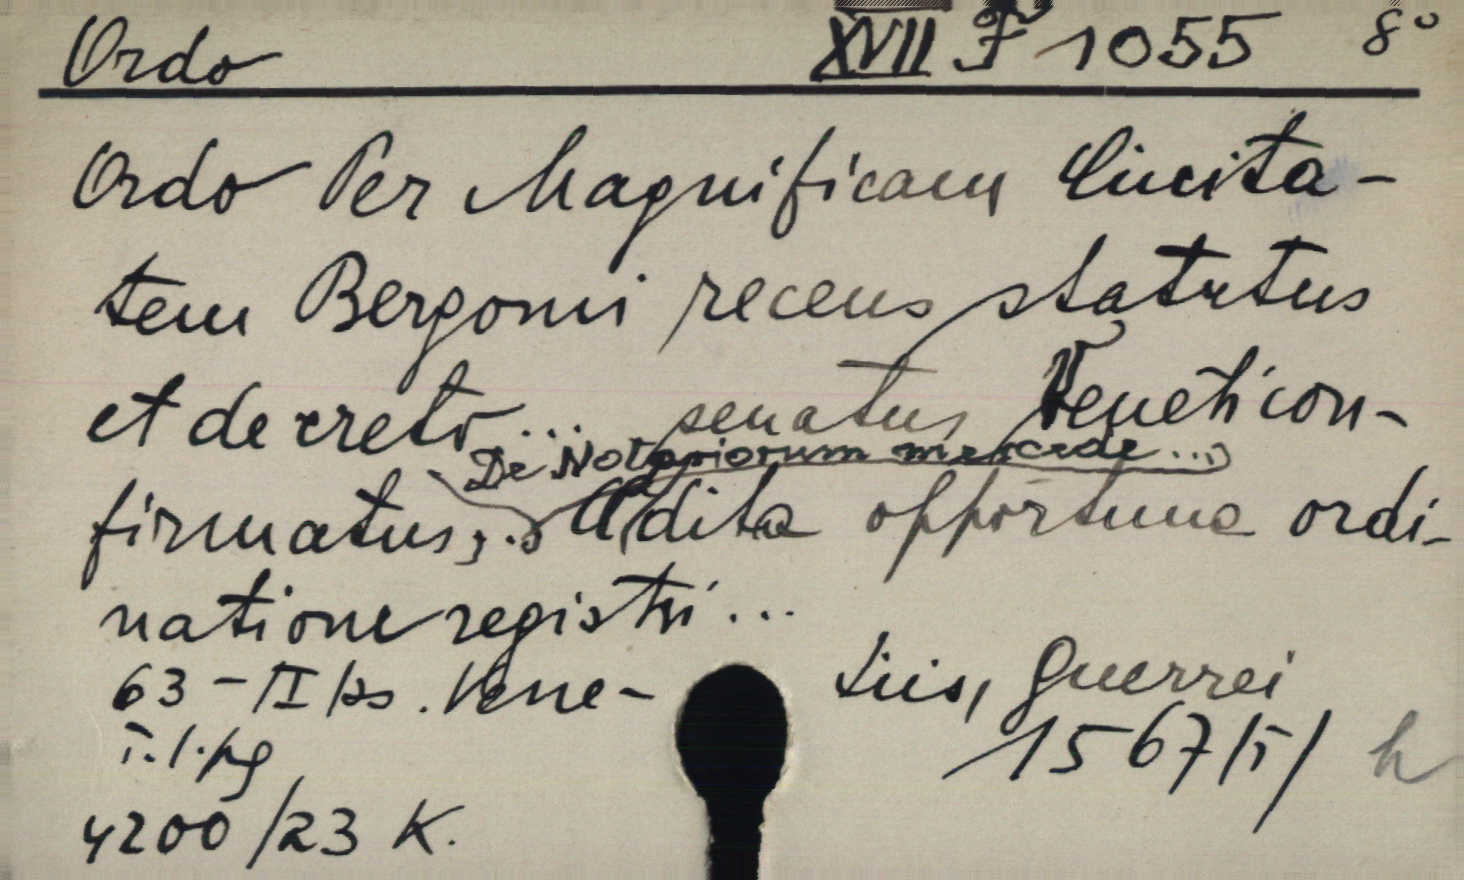 Ordo XVII F 1055 8°
Ordo Per Magnificam Civita-
tem Bergomi recens statutus
et decreto... senatus Veneti con-
De Notariorum mercede ...
firmatus, Addita opportuna ordi-
natione registri ...
63 - II ks. Vene- tiis, Guerrei
1567 h
4200/23 K.